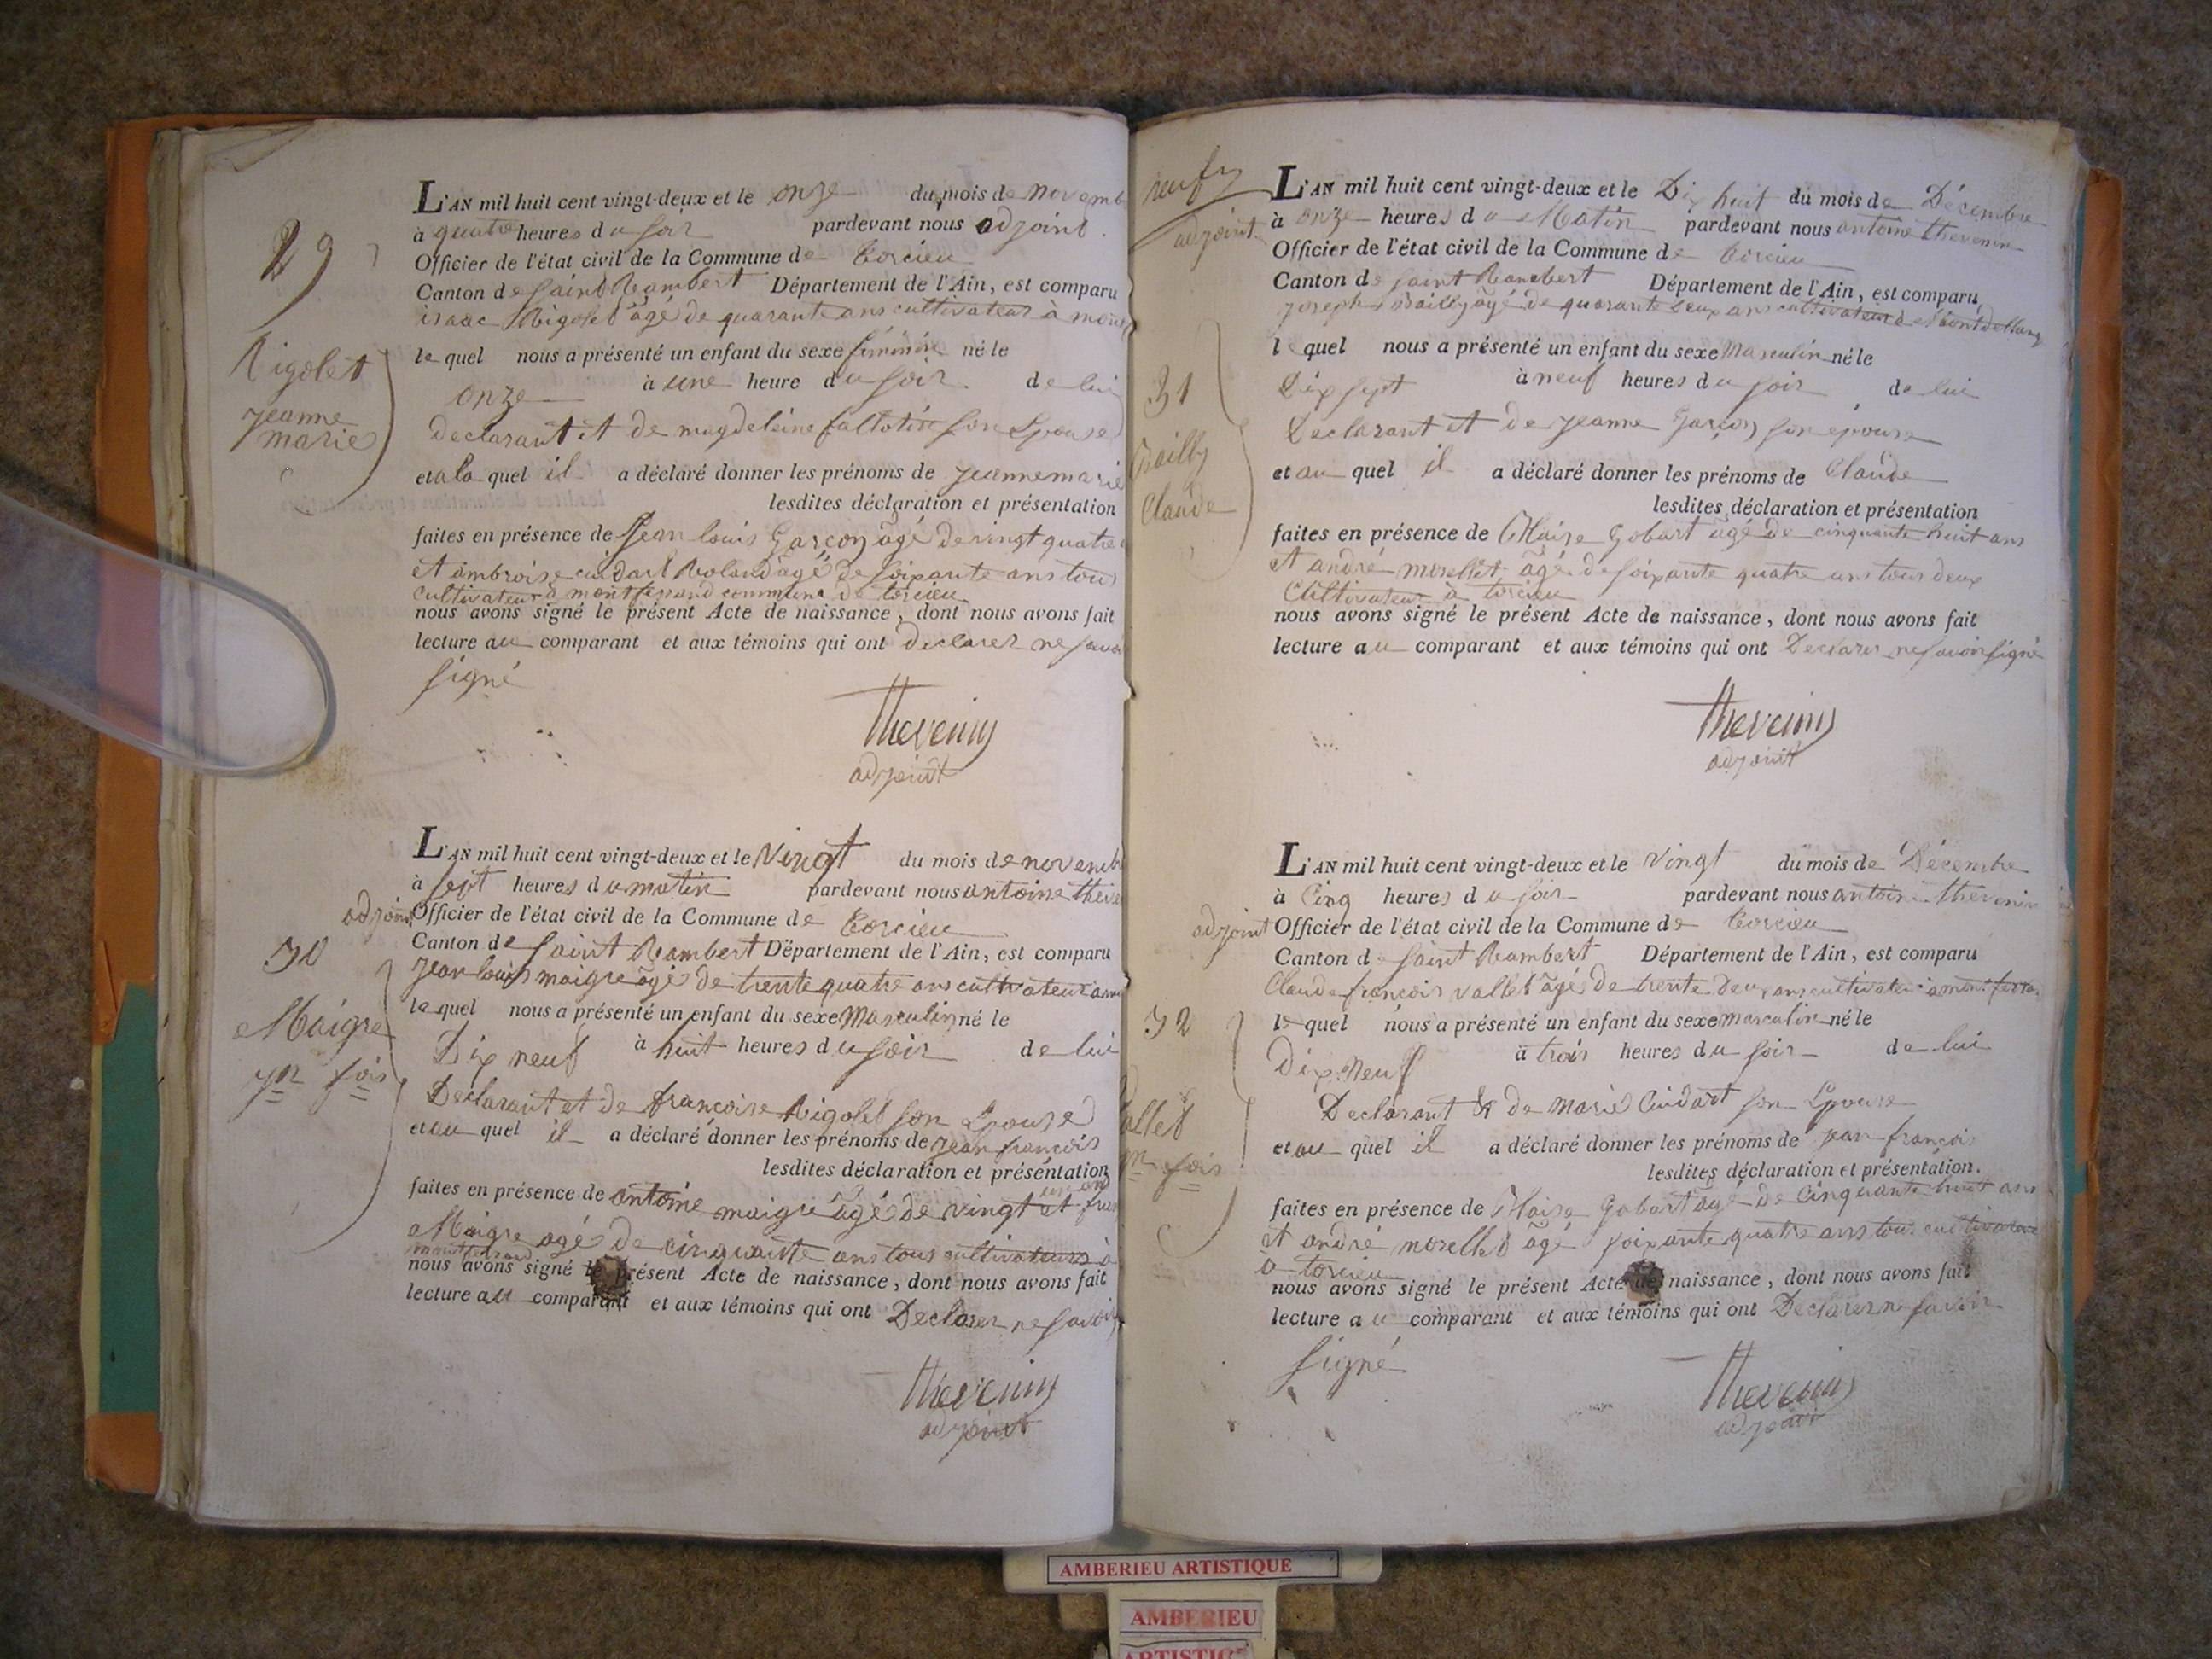 29
Rigolet
jeanne
marie
L'AN mil huit cent vingt-deux et le onze du mois de novemb
à quatre heures du soir pardevant nous adjoint
Officier de l'état civil de la Commune de torcieu
Canton de saint Rambert Département de l'Ain, est comparu
isaac Rigolet âgé de quarante ans cultivateur à
le quel nous a présenté un enfant du sexe féminin né le
onze à une heure du soir. de lui
declarant et de magdeleine son Epouse
et a la quel il a déclaré donner les prénoms de jeanne marie
lesdites déclaration et présentation
faites en présence de jean louis Garçon âgé de vingt quatre
et ambroise cuidart Roland âgé de soixante ans tous
cultivateur a montferrand commune de torcieu
nous avons signé le présent Acte de naissance, dont nous avons fait
lecture au comparant et aux témoins qui ont declarer ne savoi
signé
Thevenin
adjoint
30
Maigre
jn fois
L'AN mil huit cent vingt-deux et le vingt du mois de novemb
à sept heures du matin pardevant nous antoine theve
adjoint Officier de l'état civil de la Commune de torcieu
Canton de saint Rambert Département de l'Ain, est comparu
jean louis maigre âgé de trente quatre ans cultivateur a
le quel nous a présenté un enfant du sexe Masculin né le
Dix neuf à huit heures du soir de lui
Declarant et de françoise Rigolet son Epouse
et au quel il a déclaré donner les prénoms de jean françois
lesdites déclaration et présentation
faites en présence de antoine maigre âgé de vingt et un ans
Maigre agé de cinquante ans tous cultivateurs à
montferrand
nous avons signé le présent Acte de naissance, dont nous avons fait
lecture au comparant et aux témoins qui ont Declarer ne savoir
Thevenin
adjoint
adjoint
31
Bailly
Claude
L'AN mil huit cent vingt-deux et le Dix huit du mois de Décembre
à onze heures du Matin pardevant nous antoine thevenin
Officier de l'état civil de la Commune de torcieu
Canton de saint Rambert Département de l'Ain, est comparu
joseph Bailly âgé de quarante deux ans cultivateur a
le quel nous a présenté un enfant du sexe Masculin né le
Dix sept à neuf heures du soir de lui
Declarant et de jeanne Garçon son épouse
et au quel il a déclaré donner les prénoms de Claude
lesdites déclaration et présentation
faites en présence de Blaise Gobart âgé de cinquante huit ans
et andré morellet âgé de soixante quatre ans tous deux
Cultivateur à torcieu
nous avons signé le présent Acte de naissance, dont nous avons fait
lecture au comparant et aux témoins qui ont Declarer ne savoir signé
Thevenin
adjoint
32
allet
jn fois
L'AN mil huit cent vingt-deux et le vingt du mois de Décembre
à Cinq heures du soir pardevant nous antoine thevenin
adjoint Officier de l'état civil de la Commune de torcieu
Canton de saint Rambert Département de l'Ain, est comparu
Claude françois vallet âgé de trente Deux ans cultivateur a montferra
le quel nous a présenté un enfant du sexe masculin né le
Dix Neuf à trois heures du soir de lui
Declarant & de marie Cuidart son Epouse
et au quel il a déclaré donner les prénoms de jean françois
lesdites déclaration et présentation.
faites en présence de Blaise Gobart âgé de cinquante huit ans
et andré morellet âgé soixante quatre ans tous cultivateur
a torcieu
nous avons signé le présent Acte de naissance, dont nous avons fait
lecture au comparant et aux témoins qui ont Declarer ne savoir
signé
Thevenin
adjoint
AMBERIEU ARTISTIQUE
AMBERIEU
ARTISTIQ